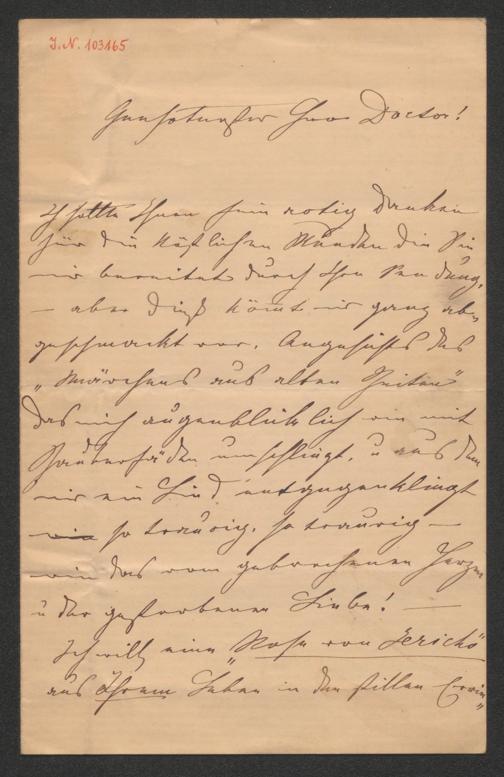 I. N. 103165
Hochgeehrter Herr Doctor!
Ich sollte Ihnen sein artig danken
für die köstlichen Stunden die Sie
mir bereitet durch Ihre Sendung,
— aber dieß kömt mir ganz ab-
geschmackt vor. Angesichts des
„Märchens aus alten Zeiten"
das mich augenblicklich wie mit
Zauberfäden umschlingt, u aus dem
mir ein Lied entgegenklingt
so traurig, so traurig —
wie das vom gebrochenen Herzen
u der gestorbenen Liebe! —
Ich will eine „Rose von Jericho"
aus Ihrem Leben in den stillen